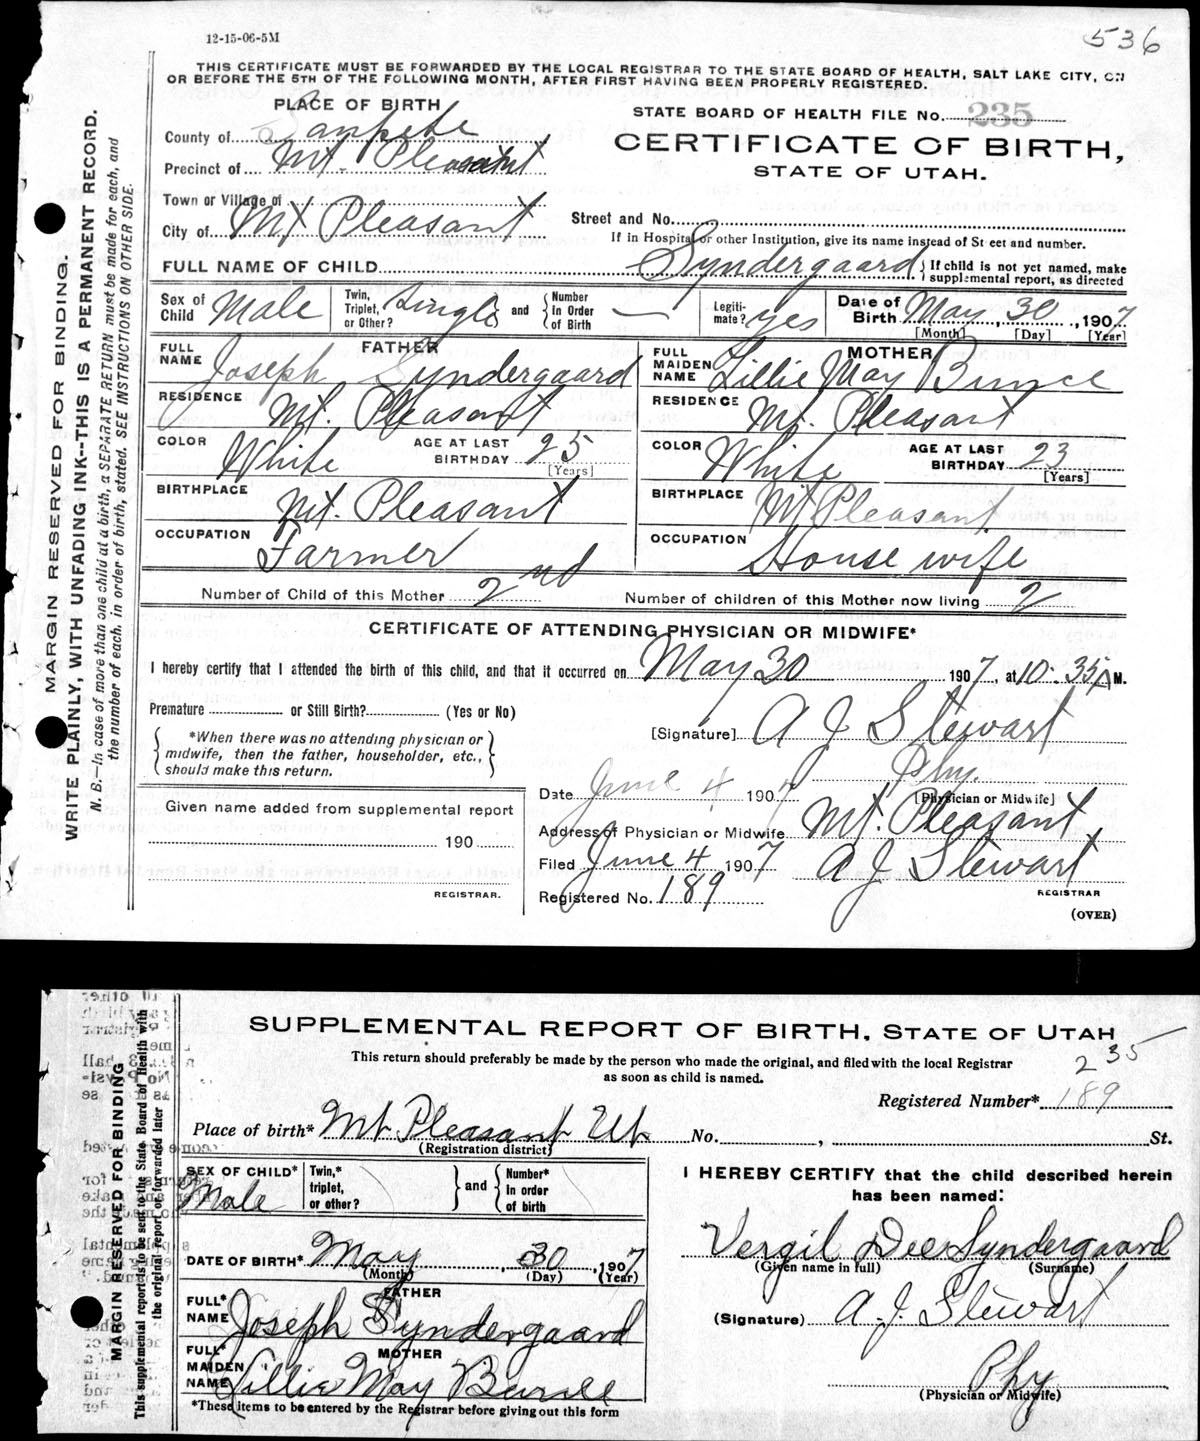 12-15-06-5M
536
THIS CERTIFICATE MUST BE FORWARDED BY THE LOCAL REGISTRAR TO THE STATE BOARD OF HEALTH, SALT LAKE CITY, ON
OR BEFORE THE 5TH OF THE FOLLOWING MONTH, AFTER FIRST HAVING BEEN PROPERLY REGISTERED.
PLACE OF BIRTH
County of Sanpete
Precinct of Mt. Pleasant
Town or Village of
City of Mt Pleasant
STATE BOARD OF HEALTH FILE No. 235
CERTIFICATE OF BIRTH,
STATE OF UTAH.
Street and No.
If in Hospital or other Institution, give its name instead of Street and number.
FULL NAME OF CHILD Syndergaard { If child is not yet named, make
supplemental report, as directed
Sex of Child Male
Twin, Triplet, or Other? Single and { Number In Order of Birth —
Legitimate? yes
Date of Birth May 30, 1907
[Month] [Day] [Year]
FATHER
FULL NAME Joseph Syndergaard
RESIDENCE Mt. Pleasant
COLOR White AGE AT LAST BIRTHDAY 25 [Years]
BIRTHPLACE Mt. Pleasant
OCCUPATION Farmer
MOTHER
FULL MAIDEN NAME Lillie May Bunce
RESIDENCE Mt. Pleasant
COLOR White AGE AT LAST BIRTHDAY 23 [Years]
BIRTHPLACE Mt Pleasant
OCCUPATION House wife
Number of Child of this Mother 2nd Number of children of this Mother now living 2
CERTIFICATE OF ATTENDING PHYSICIAN OR MIDWIFE*
I hereby certify that I attended the birth of this child, and that it occurred on May 30 1907, at 10:35 A M.
Premature or Still Birth? (Yes or No)
*When there was no attending physician or
midwife, then the father, householder, etc.,
should make this return.
[Signature] A J Stewart
Phy.
[Physician or Midwife]
Date June 4 1907
Address of Physician or Midwife Mt. Pleasant
Filed June 4 1907 A J Stewart
REGISTRAR
Registered No. 189
(OVER)
Given name added from supplemental report
190
REGISTRAR.
MARGIN RESERVED FOR BINDING.
WRITE PLAINLY, WITH UNFADING INK--THIS IS A PERMANENT RECORD.
N. B.—In case of more than one child at a birth, a SEPARATE RETURN must be made for each, and
the number of each, in order of birth, stated. SEE INSTRUCTIONS ON OTHER SIDE.
SUPPLEMENTAL REPORT OF BIRTH, STATE OF UTAH
This return should preferably be made by the person who made the original, and filed with the local Registrar
as soon as child is named.
235
Registered Number* 189
Place of birth* Mt Pleasant Ut No. , St.
(Registration district)
SEX OF CHILD* Male
Twin,* triplet, or other? } and { Number* In order of birth
DATE OF BIRTH* May, 30, 1907
(Month) (Day) (Year)
FATHER
FULL* NAME Joseph Syndergaard
MOTHER
FULL* MAIDEN NAME Lillie May
*These items to be entered by the Registrar before giving out this form
I HEREBY CERTIFY that the child described herein
has been named:
Vergil Dee Syndergaard
(Given name in full) (Surname)
(Signature) A. J. Stewart
Phy
(Physician or Midwife)
MARGIN RESERVED FOR BINDING
This supplemental report is to be sent to the State Board of Health with
the original report or forwarded later